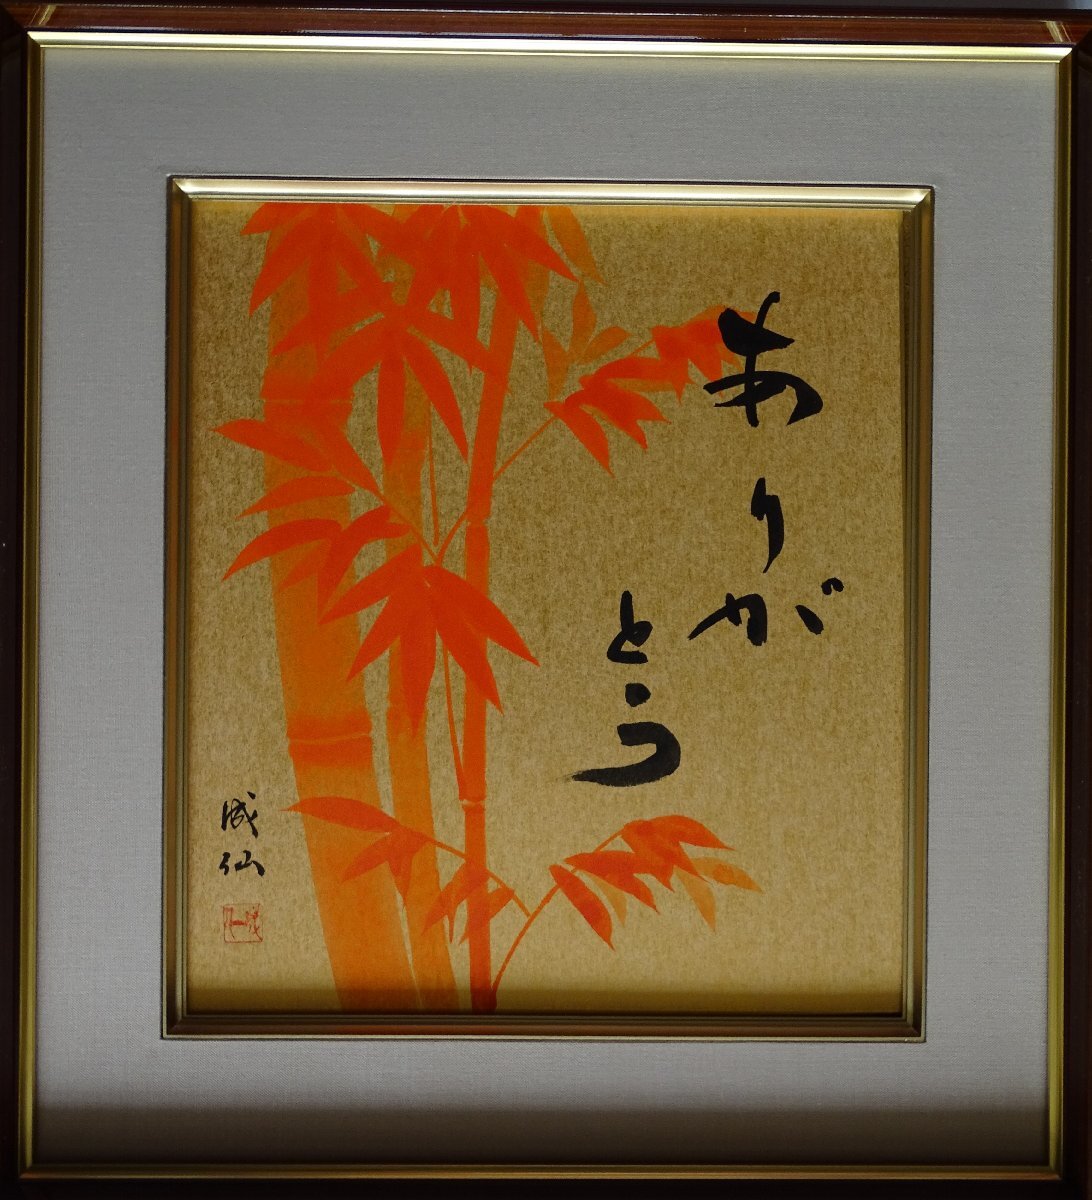 ありが
とう
成仙